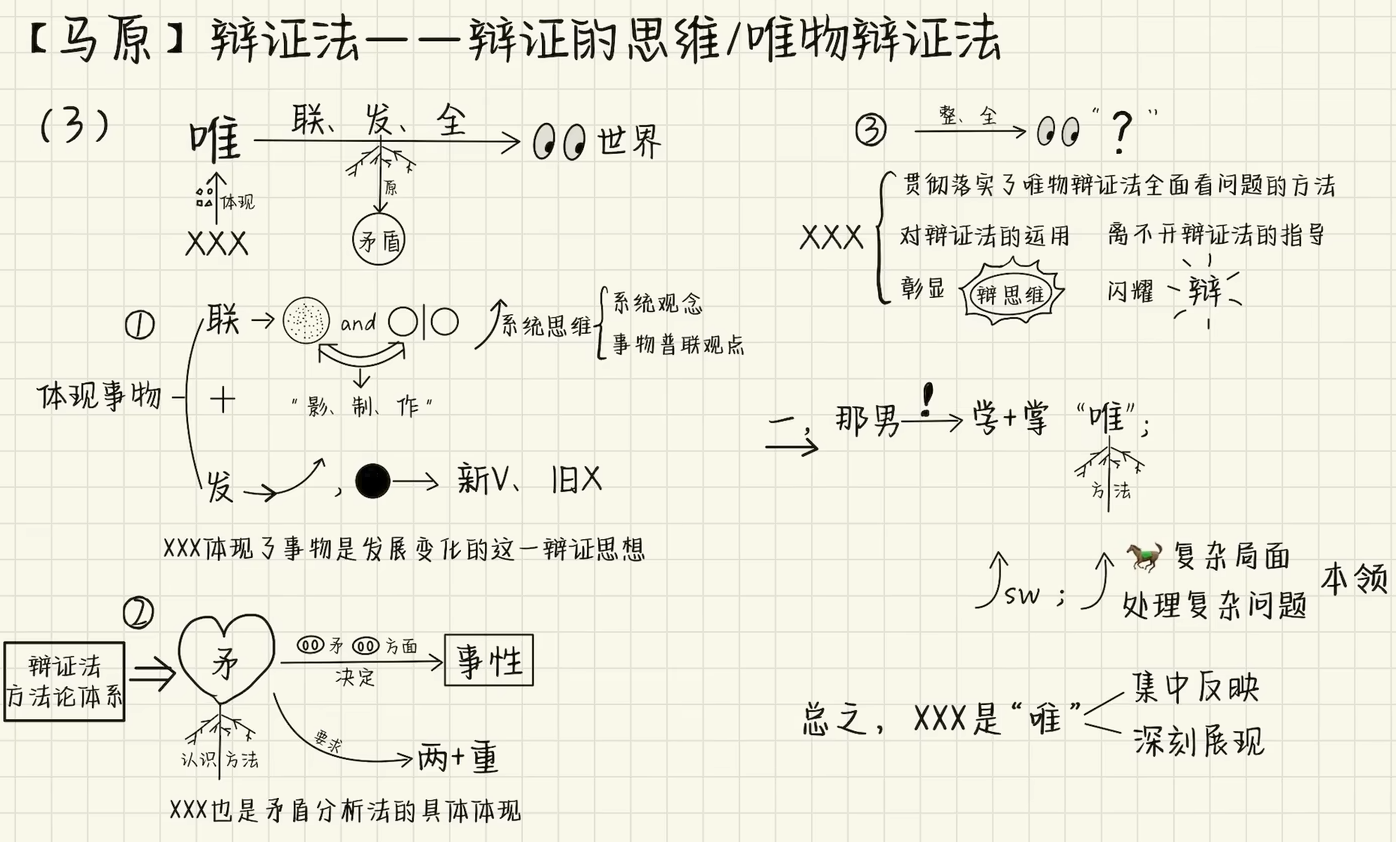 【马原】辩证法——辩证的思维/唯物辩证法
(3)
唯 联、发、全 世界
体现 原
XXX 矛盾
① 联 and 系统思维 系统观念
事物普联观点
体现事物 + "影、制、作"
发 , 新V、旧X
XXX体现了事物是发展变化的这一辩证思想
②
辩证法
方法论体系
矛 矛 方面 事性
决定
认识 方法 要求 两+重
XXX也是矛盾分析法的具体体现
③ 整、全 "?"
贯彻落实了唯物辩证法全面看问题的方法
XXX 对辩证法的运用 离不开辩证法的指导
彰显 辩思维 闪耀 辩
二, 那男 ! 学+掌 "唯";
方法
sw ; 复杂局面
处理复杂问题 本领
总之, XXX是"唯" 集中反映
深刻展现